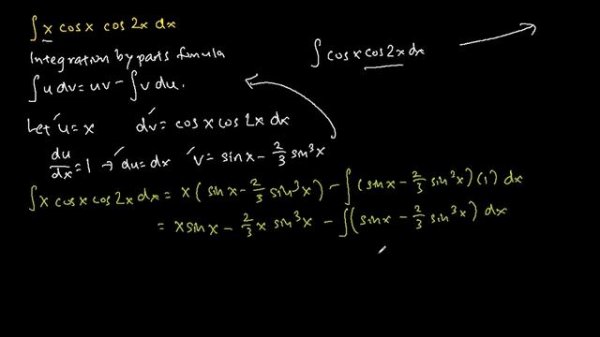 ∫ x cosx cos 2x dx
Integration by parts formula
∫ cosx cos2x dx
∫ u dv = uv - ∫ v du.
Let u = x dv = cosx cos 2x dx
du/dx = 1 → du = dx v = sinx - 2/3 sin³x
∫ x cosx cos 2x dx = x ( sinx - 2/3 sin³x ) - ∫ ( sinx - 2/3 sin³x ) (1) dx
= x sinx - 2/3 x sin³x - ∫ ( sinx - 2/3 sin³x ) dx